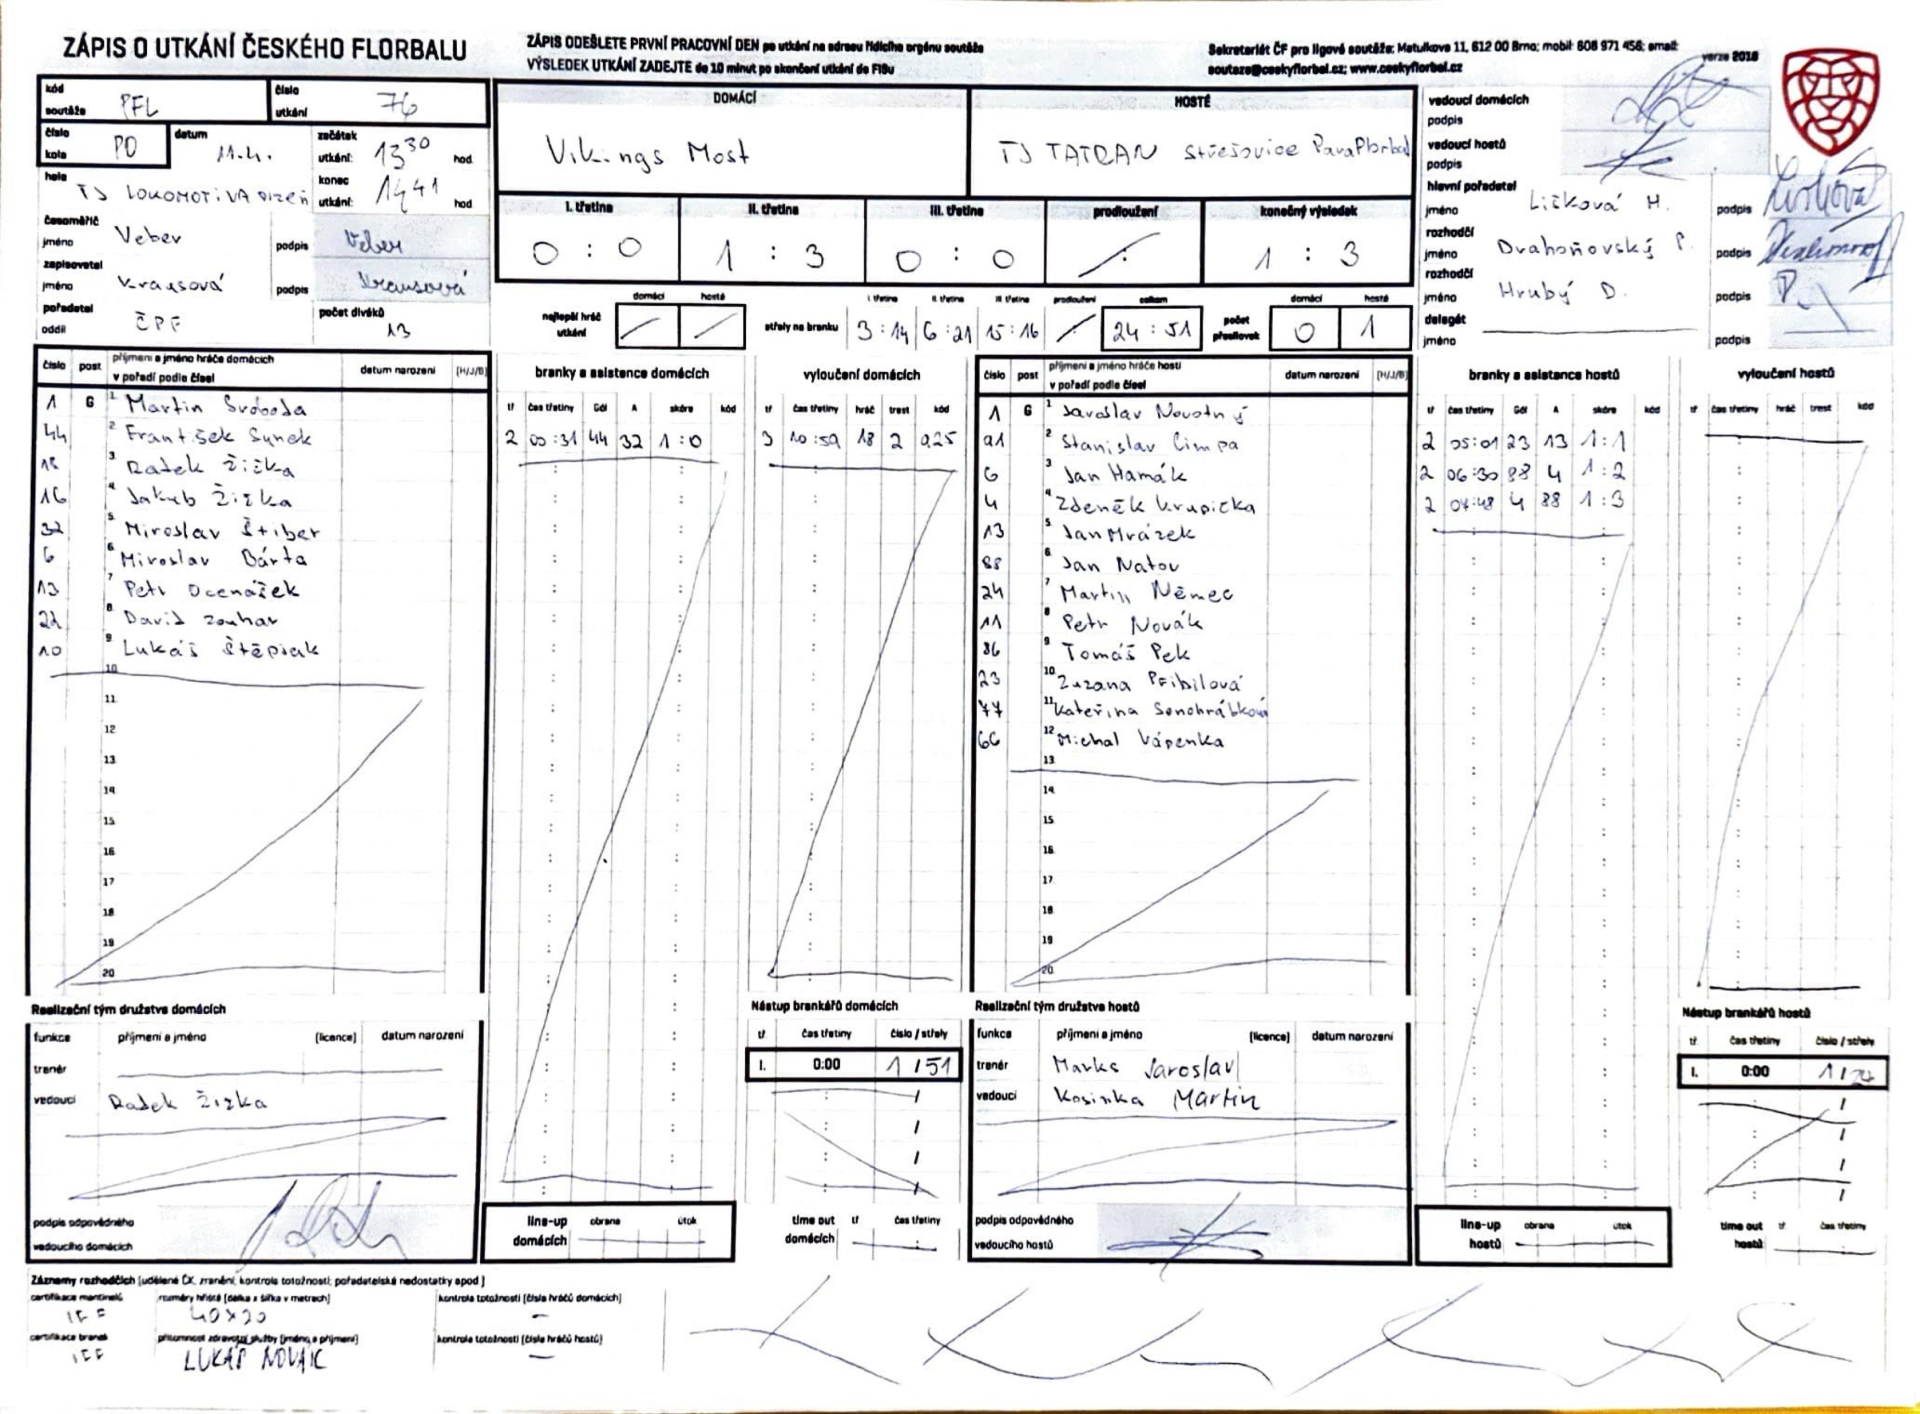 ZÁPIS O UTKÁNÍ ČESKÉHO FLORBALU
ZÁPIS ODEŠLETE PRVNÍ PRACOVNÍ DEN po utkání na adresu řídícího orgánu soutěže
VÝSLEDEK UTKÁNÍ ZADEJTE do 10 minut po skončení utkání do FISu
Sekretariát ČF pro ligové soutěže: Matulkova 11, 612 00 Brno; mobil: 608 971 456; email:
soutaze@ceskyflorbal.cz; www.ceskyflorbal.cz
verze 2018
kód soutěže PFL
číslo utkání 76
číslo kola PO
datum 11.4.
začátek utkání: 13 30 hod
konec utkání: 14 41 hod
hala TJ LOKOMOTIVA Plzeň
časoměřič jméno Veber podpis Veber
zapisovatel jméno Krausová podpis Krausová
pořadatel oddíl ČPF
počet diváků 13
DOMÁCÍ
Vikings Most
HOSTÉ
TJ TATRAN Střešovice ParaFlorbal
I. třetina II. třetina III. třetina prodloužení konečný výsledek
0 : 0 1 : 3 0 : 0 : 1 : 3
nejlepší hráč utkání domácí hosté
střely na branku
I. třetina II. třetina III. třetina prodloužení celkem
3 : 14 6 : 21 15 : 16 24 : 51
počet přesilovek domácí hosté
0 1
vedoucí domácích podpis
vedoucí hostů podpis
hlavní pořadatel
jméno Ličková H. podpis
rozhodčí
jméno Drahoňovský P. podpis
rozhodčí
jméno Hrubý D. podpis
delegát
jméno podpis
číslo post příjmení a jméno hráče domácích v pořadí podle čísel datum narození (H/J/B)
1 G 1 Martin Svoboda
44 2 František Synek
18 3 Radek Žižka
16 4 Jakub Žižka
32 5 Miroslav Štiber
6 6 Miroslav Bárta
13 7 Petr Ocenášek
22 8 David Zouhar
10 9 Lukáš Štěpiak
10
11
12
13
14
15
16
17
18
19
20
branky a asistence domácích
tř čas třetiny Gól A skóre kód
2 00:31 44 32 1:0
vyloučení domácích
tř čas třetiny hráč trest kód
3 10:59 18 2 925
číslo post příjmení a jméno hráče hostí v pořadí podle čísel datum narození (H/J/B)
1 G 1 Jaroslav Novotný
91 2 Stanislav Cimpa
6 3 Jan Hamák
4 4 Zdeněk Krupička
13 5 Jan Mrázek
88 6 Jan Natov
24 7 Martin Němec
11 8 Petr Novák
86 9 Tomáš Pek
23 10 Zuzana Přibilová
77 11 Kateřina Senohrábková
66 12 Michal Vápenka
13
14
15
16
17
18
19
20
branky a asistence hostů
tř čas třetiny Gól A skóre kód
2 05:01 23 13 1:1
2 06:30 88 4 1:2
2 07:48 4 88 1:3
vyloučení hostů
tř čas třetiny hráč trest kód
Realizační tým družstva domácích
funkce příjmení a jméno (licence) datum narození
trenér
vedoucí Radek Žižka
podpis odpovědného vedoucího domácích
Nástup brankářů domácích
tř čas třetiny číslo / střely
I. 0:00 1 / 51
line-up domácích obrana útok
time out domácích tř čas třetiny
Realizační tým družstva hostů
funkce příjmení a jméno (licence) datum narození
trenér Marks Jaroslav
vedoucí Kosinka Martin
podpis odpovědného vedoucího hostů
Nástup brankářů hostů
tř čas třetiny číslo / střely
I. 0:00 1 / 24
line-up hostů obrana útok
time out hostů tř čas třetiny
Záznamy rozhodčích (udělené ČK, zranění, kontrola totožnosti, pořadatelské nedostatky apod.)
certifikace mantinelů IFF
rozměry hřiště (délka x šířka v metrech) 40x20
kontrola totožnosti (čísla hráčů domácích) –
certifikace branek IFF
přítomnost zdravotní služby (jméno a příjmení) LUKÁŠ NOVÁK
kontrola totožnosti (čísla hráčů hostů) –